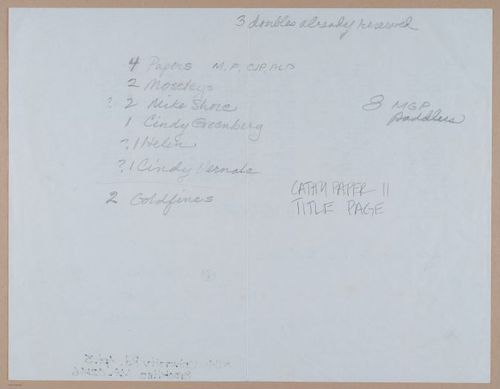 3 doubles already reserved
4 Papers M.P, CJP, ALP
2 Moseleys
? 2 Mike Shore
1 Cindy Greenberg
?, 1 Helen
?, 1 Cindy
2 Goldfines
8 MGP
paddlers
CATHY PAPER 11
TITLE PAGE